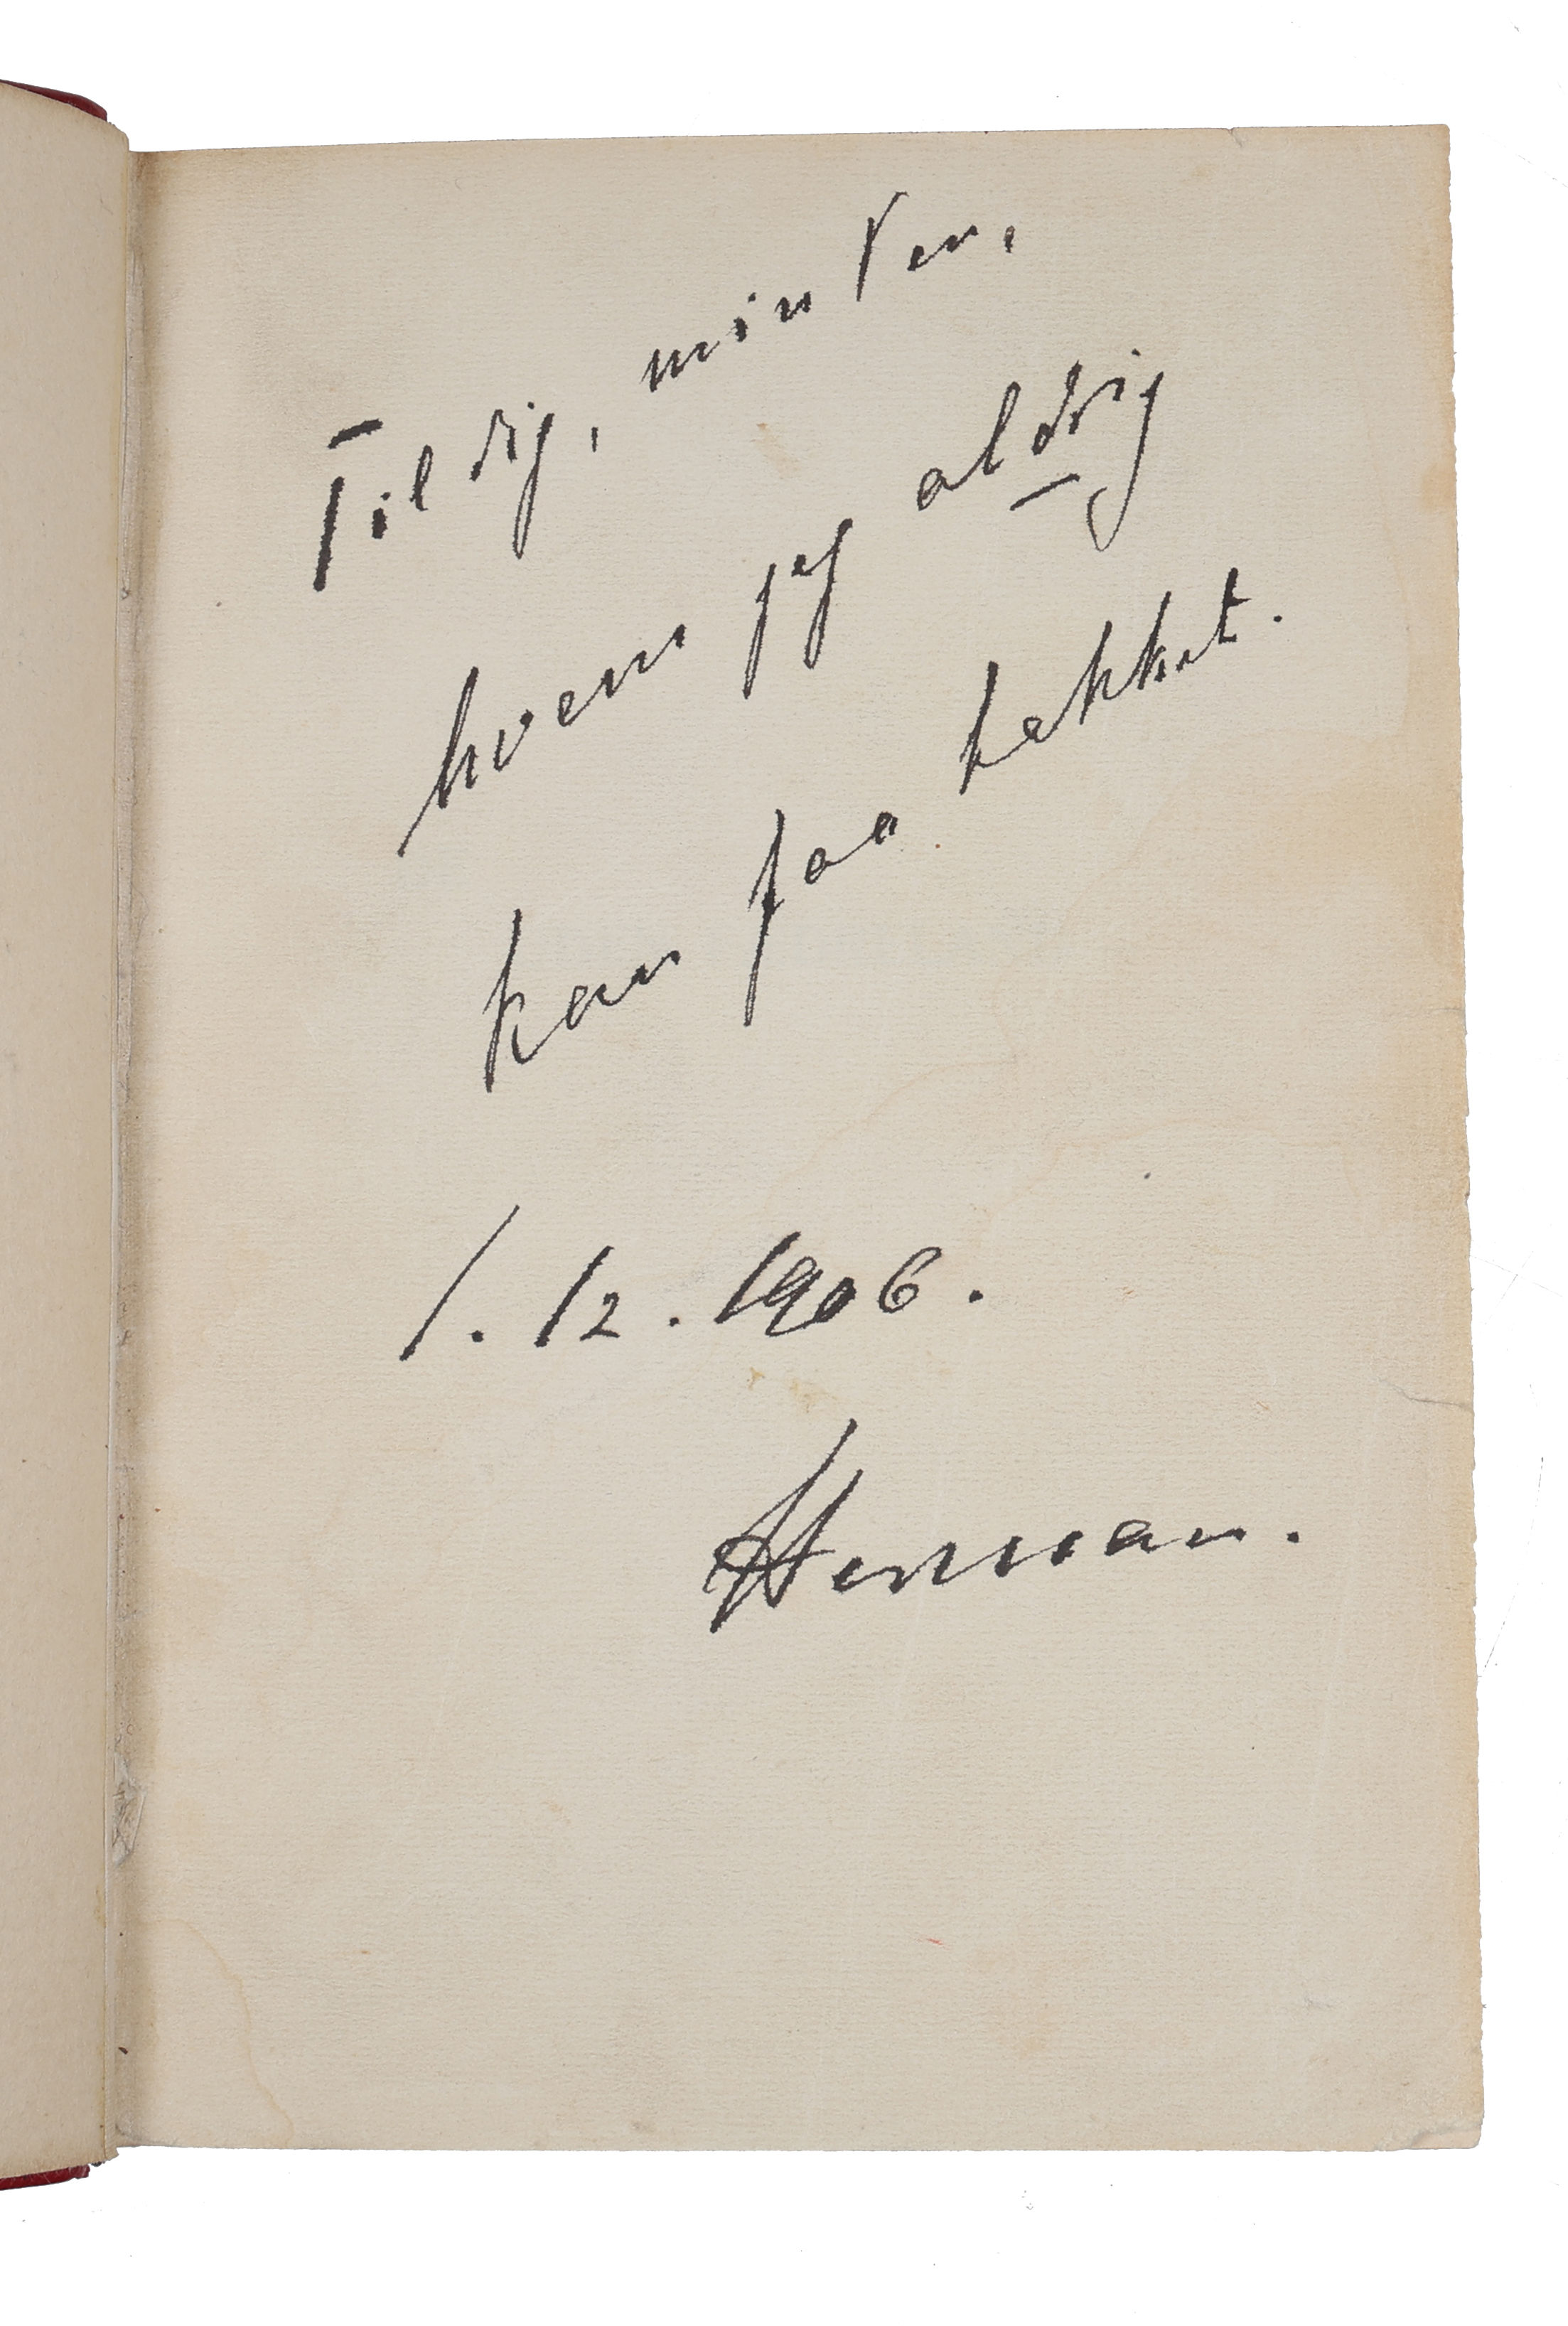 Til dig, min Ven,
hvem jeg aldrig
kan faa takket.
1. 12. 1906.
Herman.